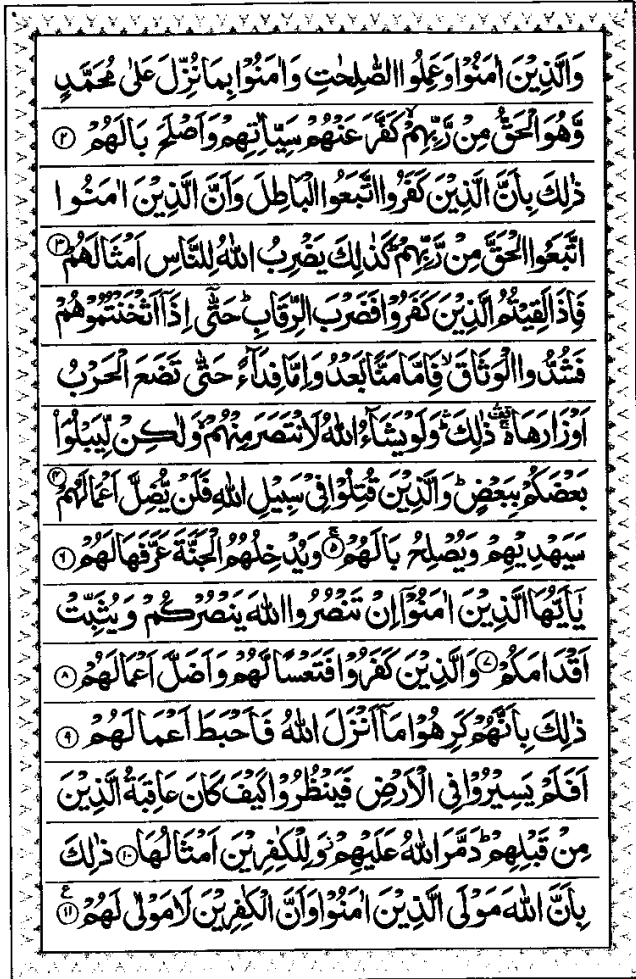 وَالَّذِيْنَ اٰمَنُوْا وَعَمِلُوا الصّٰلِحٰتِ وَاٰمَنُوْا بِمَا نُزِّلَ عَلٰى مُحَمَّدٍ
وَّهُوَ الْحَقُّ مِنْ رَّبِّهِمْ ۙ كَفَّرَ عَنْهُمْ سَيِّاٰتِهِمْ وَاَصْلَحَ بَالَهُمْ ۝۲
ذٰلِكَ بِاَنَّ الَّذِيْنَ كَفَرُوا اتَّبَعُوا الْبَاطِلَ وَاَنَّ الَّذِيْنَ اٰمَنُوا
اتَّبَعُوا الْحَقَّ مِنْ رَّبِّهِمْ ؕ كَذٰلِكَ يَضْرِبُ اللّٰهُ لِلنَّاسِ اَمْثَالَهُمْ ۝۳
فَاِذَا لَقِيْتُمُ الَّذِيْنَ كَفَرُوْا فَضَرْبَ الرِّقَابِ ؕ حَتّٰۤى اِذَاۤ اَثْخَنْتُمُوْهُمْ
فَشُدُّوا الْوَثَاقَ ۙ فَاِمَّا مَنًّۢا بَعْدُ وَاِمَّا فِدَآءً حَتّٰى تَضَعَ الْحَرْبُ
اَوْزَارَهَا ۛ۬ ذٰلِكَ ۛؕ وَلَوْ يَشَآءُ اللّٰهُ لَانْتَصَرَ مِنْهُمْ ۙ وَلٰكِنْ لِّيَبْلُوَا۟
بَعْضَكُمْ بِبَعْضٍ ؕ وَالَّذِيْنَ قُتِلُوْا فِيْ سَبِيْلِ اللّٰهِ فَلَنْ يُّضِلَّ اَعْمَالَهُمْ ۝۴
سَيَهْدِيْهِمْ وَيُصْلِحُ بَالَهُمْ ۝۵ۚ وَيُدْخِلُهُمُ الْجَنَّةَ عَرَّفَهَا لَهُمْ ۝۶
يٰۤاَيُّهَا الَّذِيْنَ اٰمَنُوْۤا اِنْ تَنْصُرُوا اللّٰهَ يَنْصُرْكُمْ وَيُثَبِّتْ
اَقْدَامَكُمْ ۝۷ وَالَّذِيْنَ كَفَرُوْا فَتَعْسًا لَّهُمْ وَاَضَلَّ اَعْمَالَهُمْ ۝۸
ذٰلِكَ بِاَنَّهُمْ كَرِهُوْا مَاۤ اَنْزَلَ اللّٰهُ فَاَحْبَطَ اَعْمَالَهُمْ ۝۹
اَفَلَمْ يَسِيْرُوْا فِي الْاَرْضِ فَيَنْظُرُوْا كَيْفَ كَانَ عَاقِبَةُ الَّذِيْنَ
مِنْ قَبْلِهِمْ ؕ دَمَّرَ اللّٰهُ عَلَيْهِمْ ؗ وَلِلْكٰفِرِيْنَ اَمْثَالُهَا ۝۱۰ ذٰلِكَ
بِاَنَّ اللّٰهَ مَوْلَى الَّذِيْنَ اٰمَنُوْا وَاَنَّ الْكٰفِرِيْنَ لَا مَوْلٰى لَهُمْ ۝۱۱ ع